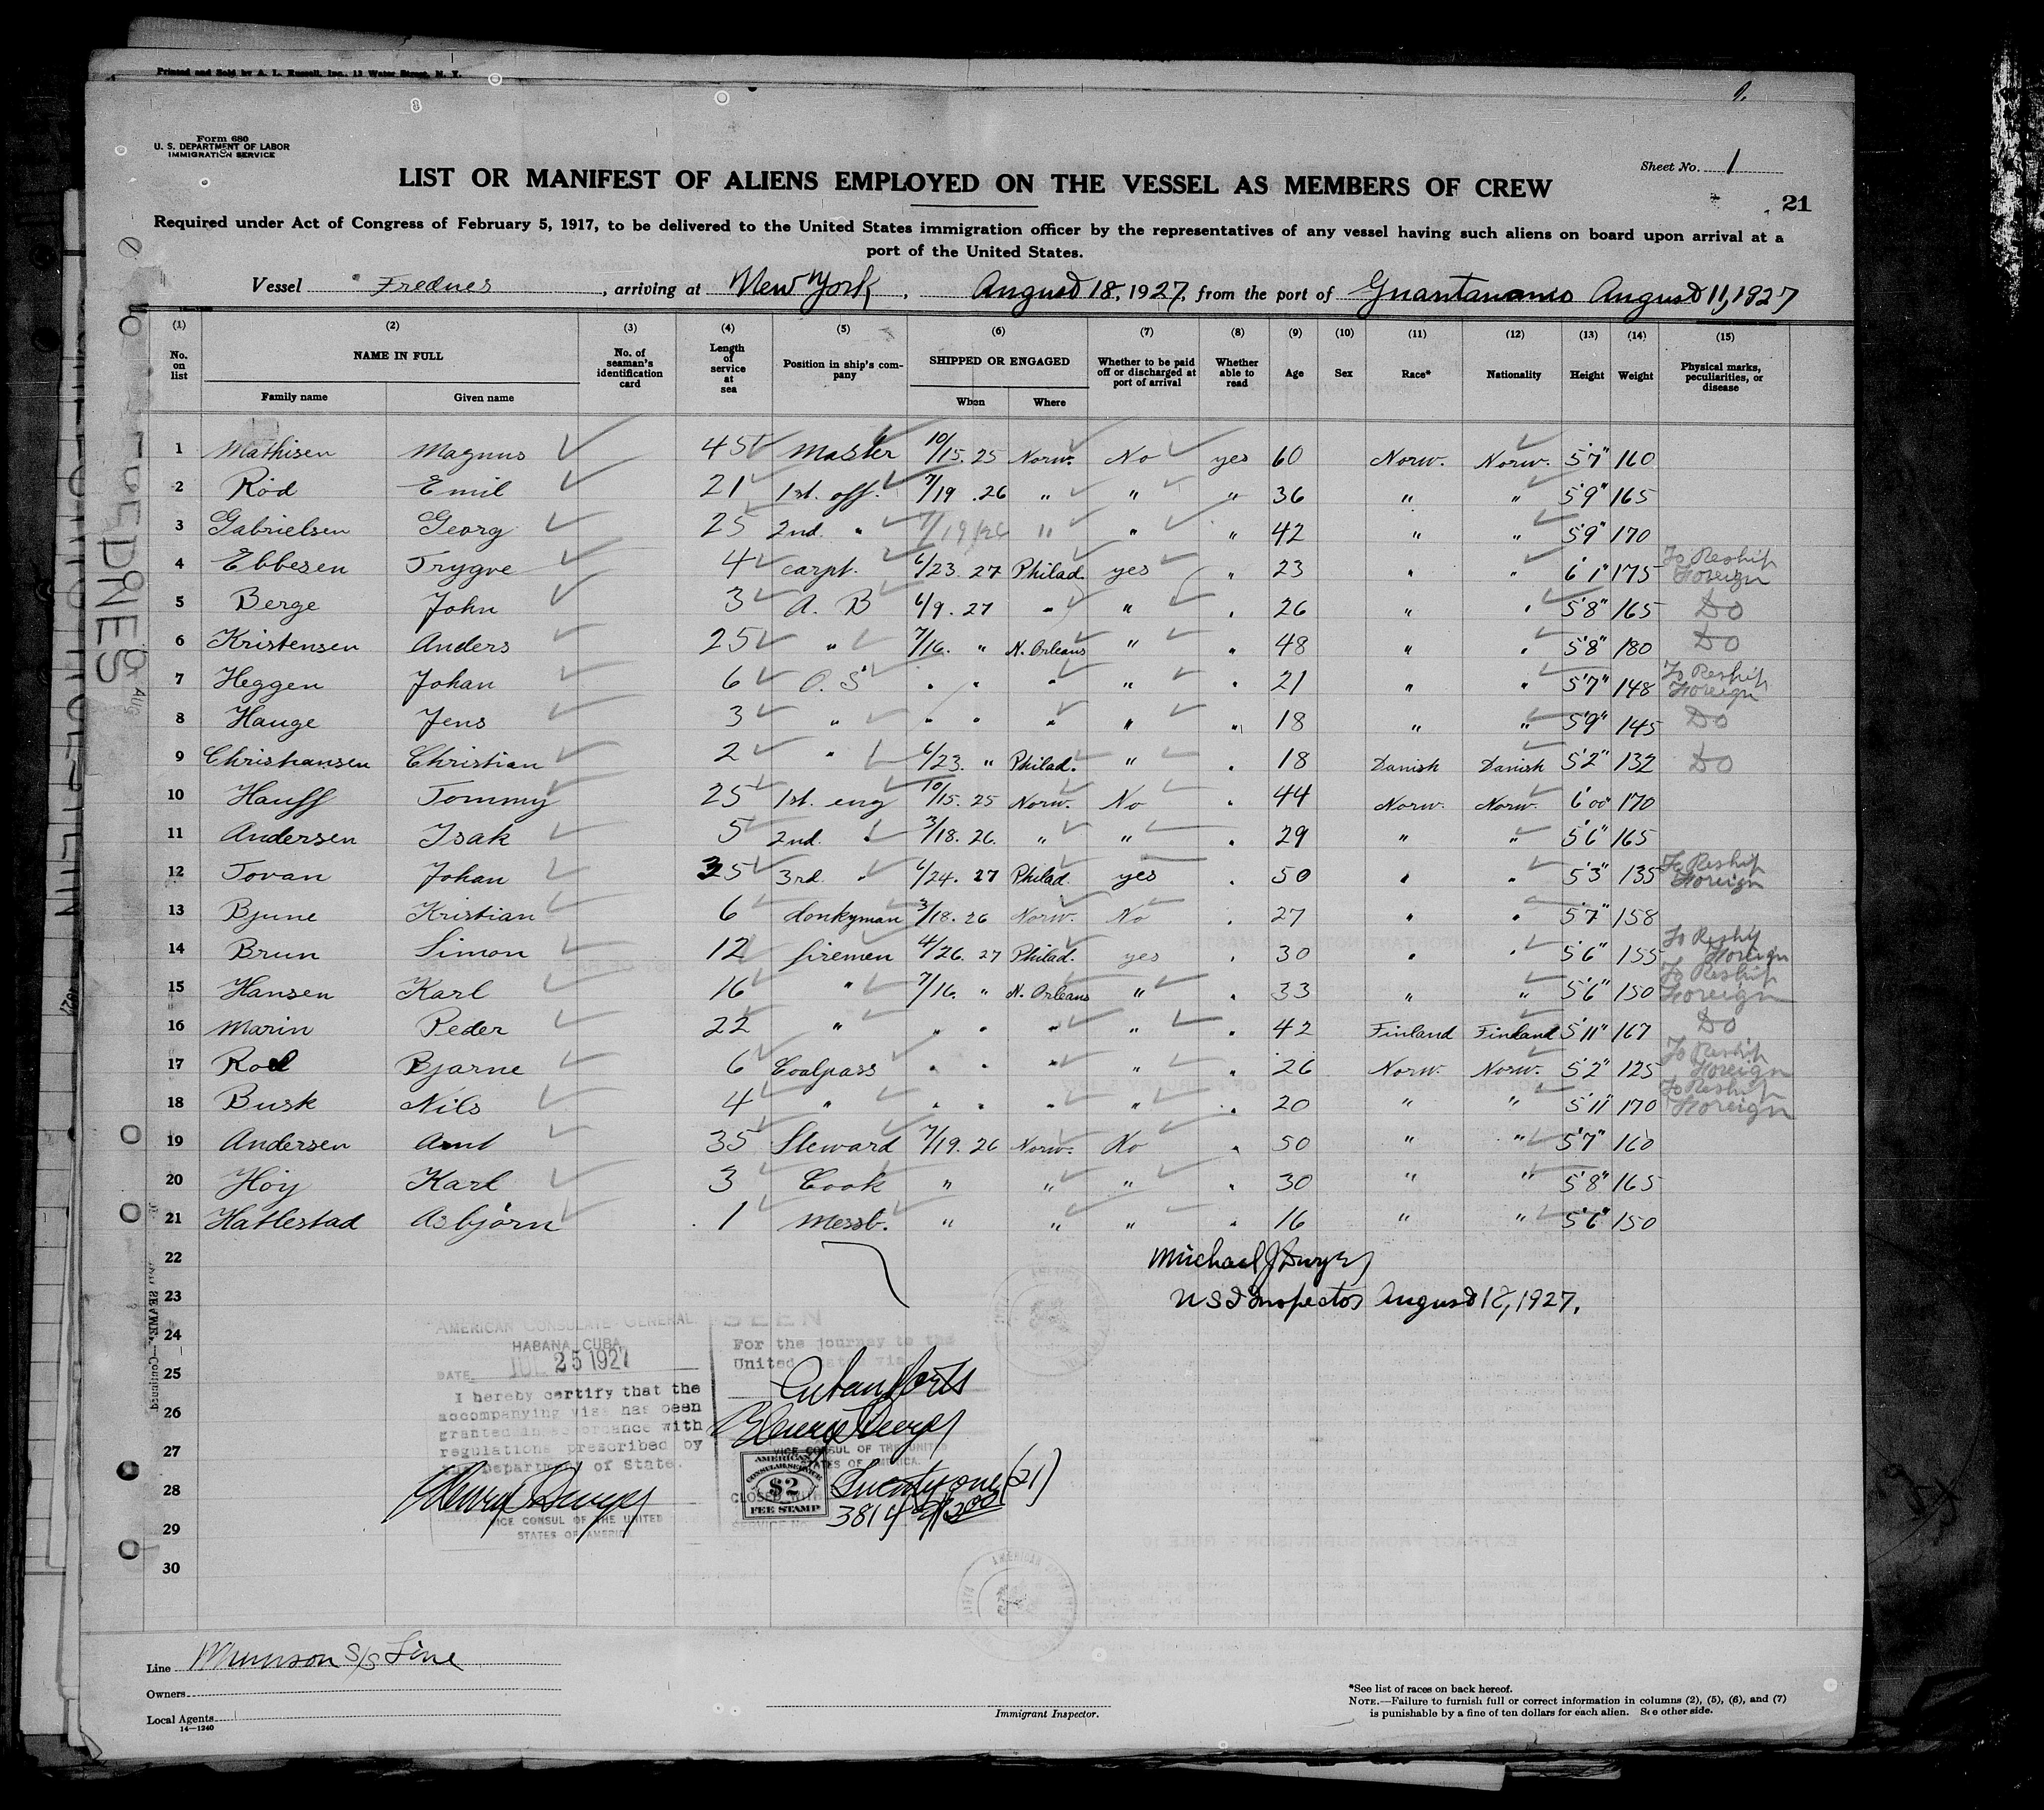 Printed and Sold by A. L. Russell, Inc., 13 Water Street, N. Y.
Form 680
U. S. DEPARTMENT OF LABOR
IMMIGRATION SERVICE
Sheet No. 1
LIST OR MANIFEST OF ALIENS EMPLOYED ON THE VESSEL AS MEMBERS OF CREW
21
Required under Act of Congress of February 5, 1917, to be delivered to the United States immigration officer by the representatives of any vessel having such aliens on board upon arrival at a
port of the United States.
Vessel Frednes, arriving at New York, August 18, 1927, from the port of Guantanamo August 11, 1927
(1) (2) (3) (4) (5) (6) (7) (8) (9) (10) (11) (12) (13) (14) (15)
No. on list NAME IN FULL Family name Given name No. of seaman's identification card Length of service at sea Position in ship's company SHIPPED OR ENGAGED When Where Whether to be paid off or discharged at port of arrival Whether able to read Age Sex Race* Nationality Height Weight Physical marks, peculiarities, or disease
1 Mathisen Magnus 45 Master 10/15. 25 Norw. No yes 60 Norw. Norw. 5'7" 160
2 Röd Emil 21 1st. off. 7/19 .26 " " " 36 " " 5'9" 165
3 Gabrielsen Georg 25 2nd. " 7/19/26 " " " 42 " " 5'9 170
4 Ebbesen Trygve 4 carpt. 6/23. 27 Philad. yes " 23 " " 6'1" 175 To Reship Foreign
5 Berge John 3 A. B 6/9. 27 " " " 26 " " 5'8" 165 Do
6 Kristensen Anders 25 " 7/16. " N. Orleans " " 48 " " 5'8" 180 Do
7 Heggen Johan 6 O. S " " " " " 21 " " 5'7" 148 To Reship Foreign
8 Hauge Jens 3 " " " " " " 18 " " 5'9" 145 Do
9 Christiansen Christian 2 " 6/23. " Philad. " " 18 Danish Danish 5'2" 132 Do
10 Hauff Tommy 25 1st. eng 10/15. 25 Norw. No " 44 Norw. Norw. 6'00" 170
11 Andersen Isak 5 2nd. " 3/18. 26. " " " 29 " " 5'6" 165
12 Tovan Johan 35 3rd. " 6/24. 27 Philad. yes " 50 " " 5'3" 135 To Reship Foreign
13 Bjune Kristian 6 donkyman 3/18. 26 Norw. No " 27 " " 5'7" 158
14 Brun Simon 12 firemen 4/26. 27 Philad. yes " 30 " " 5'6" 155 To Reship Foreign
15 Hansen Karl 16 " 7/16. " N. Orleans " " 33 " " 5'6" 150 To Reship Foreign
16 Marin Peder 22 " " " " " " 42 Finland Finland 5'11" 167 Do
17 Rod Bjarne 6 Coalpass " " " " " 26 Norw. Norw. 5'2" 125 To Reship Foreign
18 Busk Nils 4 " " " " " " 20 " " 5'11" 170 To Reship Foreign
19 Andersen Arnt 35 Steward 7/19. 26 Norw. No " 50 " " 5'7" 160
20 Höy Karl 3 Cook " " " " 30 " " 5'8" 165
21 Hatlestad Asbjörn 1 Messb. " " " " 16 " " 5'6" 150
22 Michael J Dwyer
23 U S I Inspector August 18, 1927.
24
25
26
27
28
29
30
AMERICAN CONSULATE GENERAL
HABANA, CUBA
DATE JUL 25 1927
I hereby certify that the
accompanying visa has been
granted in accordance with
regulations prescribed by
the Department of State.
VICE CONSUL OF THE UNITED
STATES OF AMERICA
SEEN
For the journey to the
United States via
Cuban Ports
VICE CONSUL OF THE UNITED
STATES OF AMERICA.
AMERICAN
CONSULAR SERVICE
$2
FEE STAMP
Twenty one (21)
3814
Line Munson S/S Line
Owners
Local Agents
14—1240
Immigrant Inspector.
*See list of races on back hereof.
NOTE.—Failure to furnish full or correct information in columns (2), (5), (6), and (7)
is punishable by a fine of ten dollars for each alien. See other side.